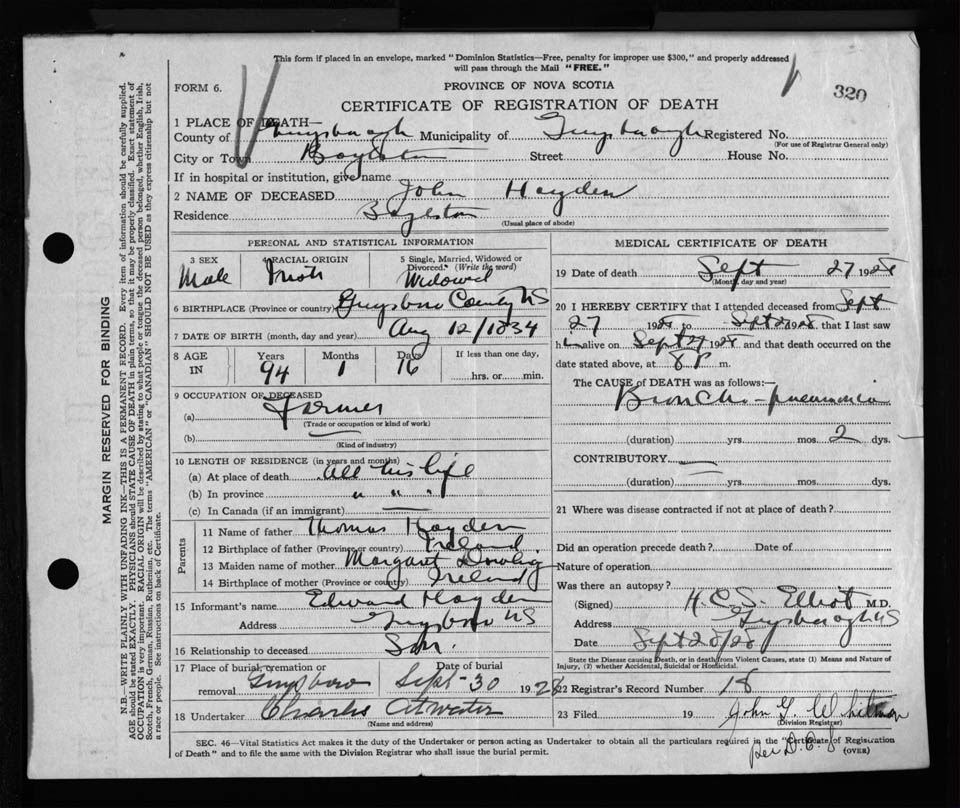 This form if placed in an envelope, marked "Dominion Statistics—Free, penalty for improper use $300," and properly addressed
will pass through the Mail "FREE."
FORM 6.
PROVINCE OF NOVA SCOTIA
320
CERTIFICATE OF REGISTRATION OF DEATH
1 PLACE OF DEATH—
County of Guysborough Municipality of Guysborough Registered No.
(For use of Registrar General only)
City or Town Boylston Street House No.
If in hospital or institution, give name
2 NAME OF DECEASED John Hayden
Residence Boylston
(Usual place of abode)
PERSONAL AND STATISTICAL INFORMATION
3 SEX 4 RACIAL ORIGIN 5 Single, Married, Widowed or Divorced. (Write the word)
Male Irish Widowed
6 BIRTHPLACE (Province or country) Guysboro County NS
7 DATE OF BIRTH (month, day and year) Aug 12/1834
8 AGE IN Years Months Days If less than one day,
94 1 16 hrs. or min.
9 OCCUPATION OF DECEASED
(a) Farmer
(Trade or occupation or kind of work)
(b)
(Kind of industry)
10 LENGTH OF RESIDENCE (in years and months)
(a) At place of death All his life
(b) In province " " "
(c) In Canada (if an immigrant) —
Parents
11 Name of father Thomas Hayden
12 Birthplace of father (Province or country) Ireland
13 Maiden name of mother Margaret
14 Birthplace of mother (Province or country) Ireland
15 Informant's name Edward Hayden
Address Guysboro NS
16 Relationship to deceased Son.
17 Place of burial, cremation or removal Guysboro Date of burial Sept-30 1928
18 Undertaker Charles Atwater
(Name and address)
MEDICAL CERTIFICATE OF DEATH
19 Date of death Sept 27 1928
(Month, day and year)
20 I HEREBY CERTIFY that I attended deceased from Sept
27 1928 to Sept 27 1928 that I last saw
h im alive on Sept 27 1928 and that death occurred on the
date stated above, at 8 P m.
The CAUSE OF DEATH was as follows:—
Broncho-pneumonia
(duration) yrs. mos. 2 dys.
CONTRIBUTORY —
(duration) yrs. mos. dys.
21 Where was disease contracted if not at place of death?
Did an operation precede death? Date of
Nature of operation
Was there an autopsy?
(Signed) H. C. S. Elliot M.D.
Address Guysborough NS
Date Sept 28/28
State the Disease causing Death, or in death from Violent Causes, state (1) Means and Nature of
Injury, (2) whether Accidental, Suicidal or Homicidal.
22 Registrar's Record Number 18
23 Filed 19 John G. Whitman
(Division Registrar)
per D. C. S
SEC. 46—Vital Statistics Act makes it the duty of the Undertaker or person acting as Undertaker to obtain all the particulars required in the "Certificate of Registration
of Death" and to file the same with the Division Registrar who shall issue the burial permit.
(OVER)
MARGIN RESERVED FOR BINDING
N.B.—WRITE PLAINLY WITH UNFADING INK—THIS IS A PERMANENT RECORD. Every item of information should be carefully supplied.
AGE should be stated EXACTLY. PHYSICIANS should STATE CAUSE OF DEATH in plain terms, so that it may be properly classified. Exact statement of
OCCUPATION is very important. RACIAL ORIGIN will be described by stating to what people or tongue the deceased person belonged, whether English, Irish,
Scotch, French, German, Russian, Ruthenian, etc. The terms "AMERICAN" or "CANADIAN" SHOULD NOT BE USED as they express citizenship but not
a race or people. See instructions on back of Certificate.